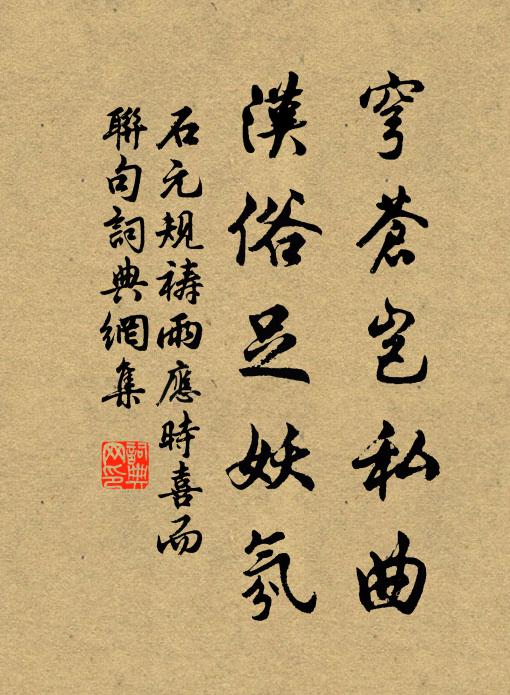 穹蒼豈私曲
漢俗足妖氛
石元規禱雨應時喜而
聯句詞典網集
詞典网印